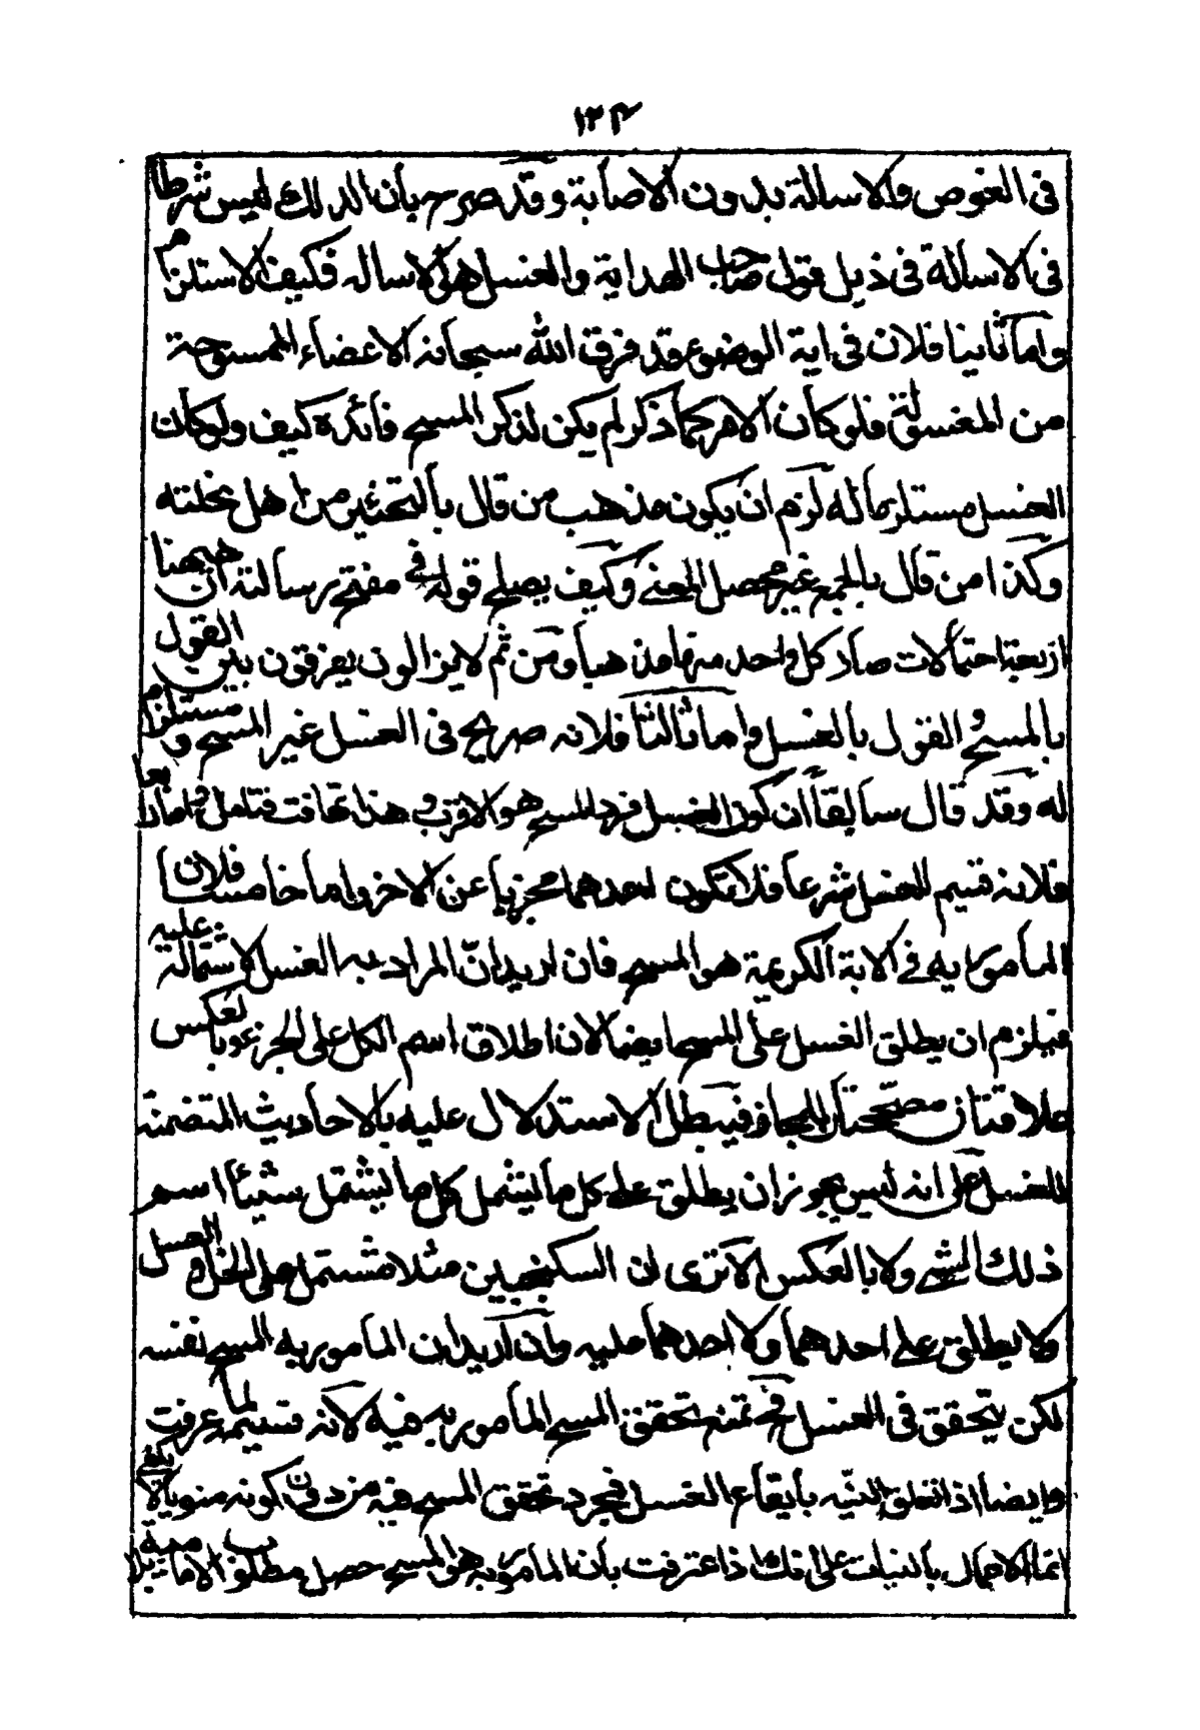 ١٣٤
فى الغوص والاسالة بدون الاصابة وقد صرح بأن الدلك ليس شرطا
فى الاسالة فى ذيل قول صاحب الهداية والغسل هو الاسالة فكيف الاستلزام
واما ثانيا فلان فى اية الوضوء قد فرق الله سبحانه الاعضاء الممسوحة
من المغسولة فلو كان الامر كما ذكر لم يكن لذكر المسح فائدة كيف ولو كان
الغسل مستلزما له لزم ان يكون مذهب من قال بالتخيير من اهل نحلته
وكذا من قال بالجمع غير محصل المعنى وكيف يصح قوله فى مفتح رسالته ان ههنا
اربعة احتمالات صار كل واحد منها مذهبا ومن ثم لايزالون يفرقون بين القول
بالمسح القول بالغسل واما ثالثا فلانه صريح فى الغسل غير المسح و مستلزم
له وقد قال سابقا ان كون الغسل فرد المسح هو الاقرب و هذا تهافت فتامل واما رابعا
فلانه قسيم للغسل شرعا فلا يكون احدهما مجزيا عن الاخر واما خامسا فلان
المأمور به فى الاية الكريمة هو المسح فان اريد ان المراد به الغسل لاشتماله عليه
فيلزم ان يطلق الغسل على المسح ايضا لان اطلاق اسم الكل على الجزء وبالعكس
علاقتان مصححتان للمجاز فيبطل الاستدلال عليه بالاحاديث المتضمنة
للغسل على انه ليس يجوز ان يطلق على كل ما يشمل كل ما يشتمل شيئا اسم
ذلك الشئ ولا بالعكس الا ترى ان السكنجبين مثلا مشتمل على الخل والعسل
ولا يطلق على احدهما ولا احدهما عليه وان اريد ان المامور به المسح نفسه
لكن يتحقق فى الغسل تحقق المسح المأمور به فيه لانه قسيمه لما عرفت
وايضا اذا تعلق النية بايقاع الغسل فمجرد تحقق المسح فيه من دون كونه منويا
انما الاعمال بالنيات على انك اذا اعترفت بان المامور به هو المسح حصل مطلوب الامامية